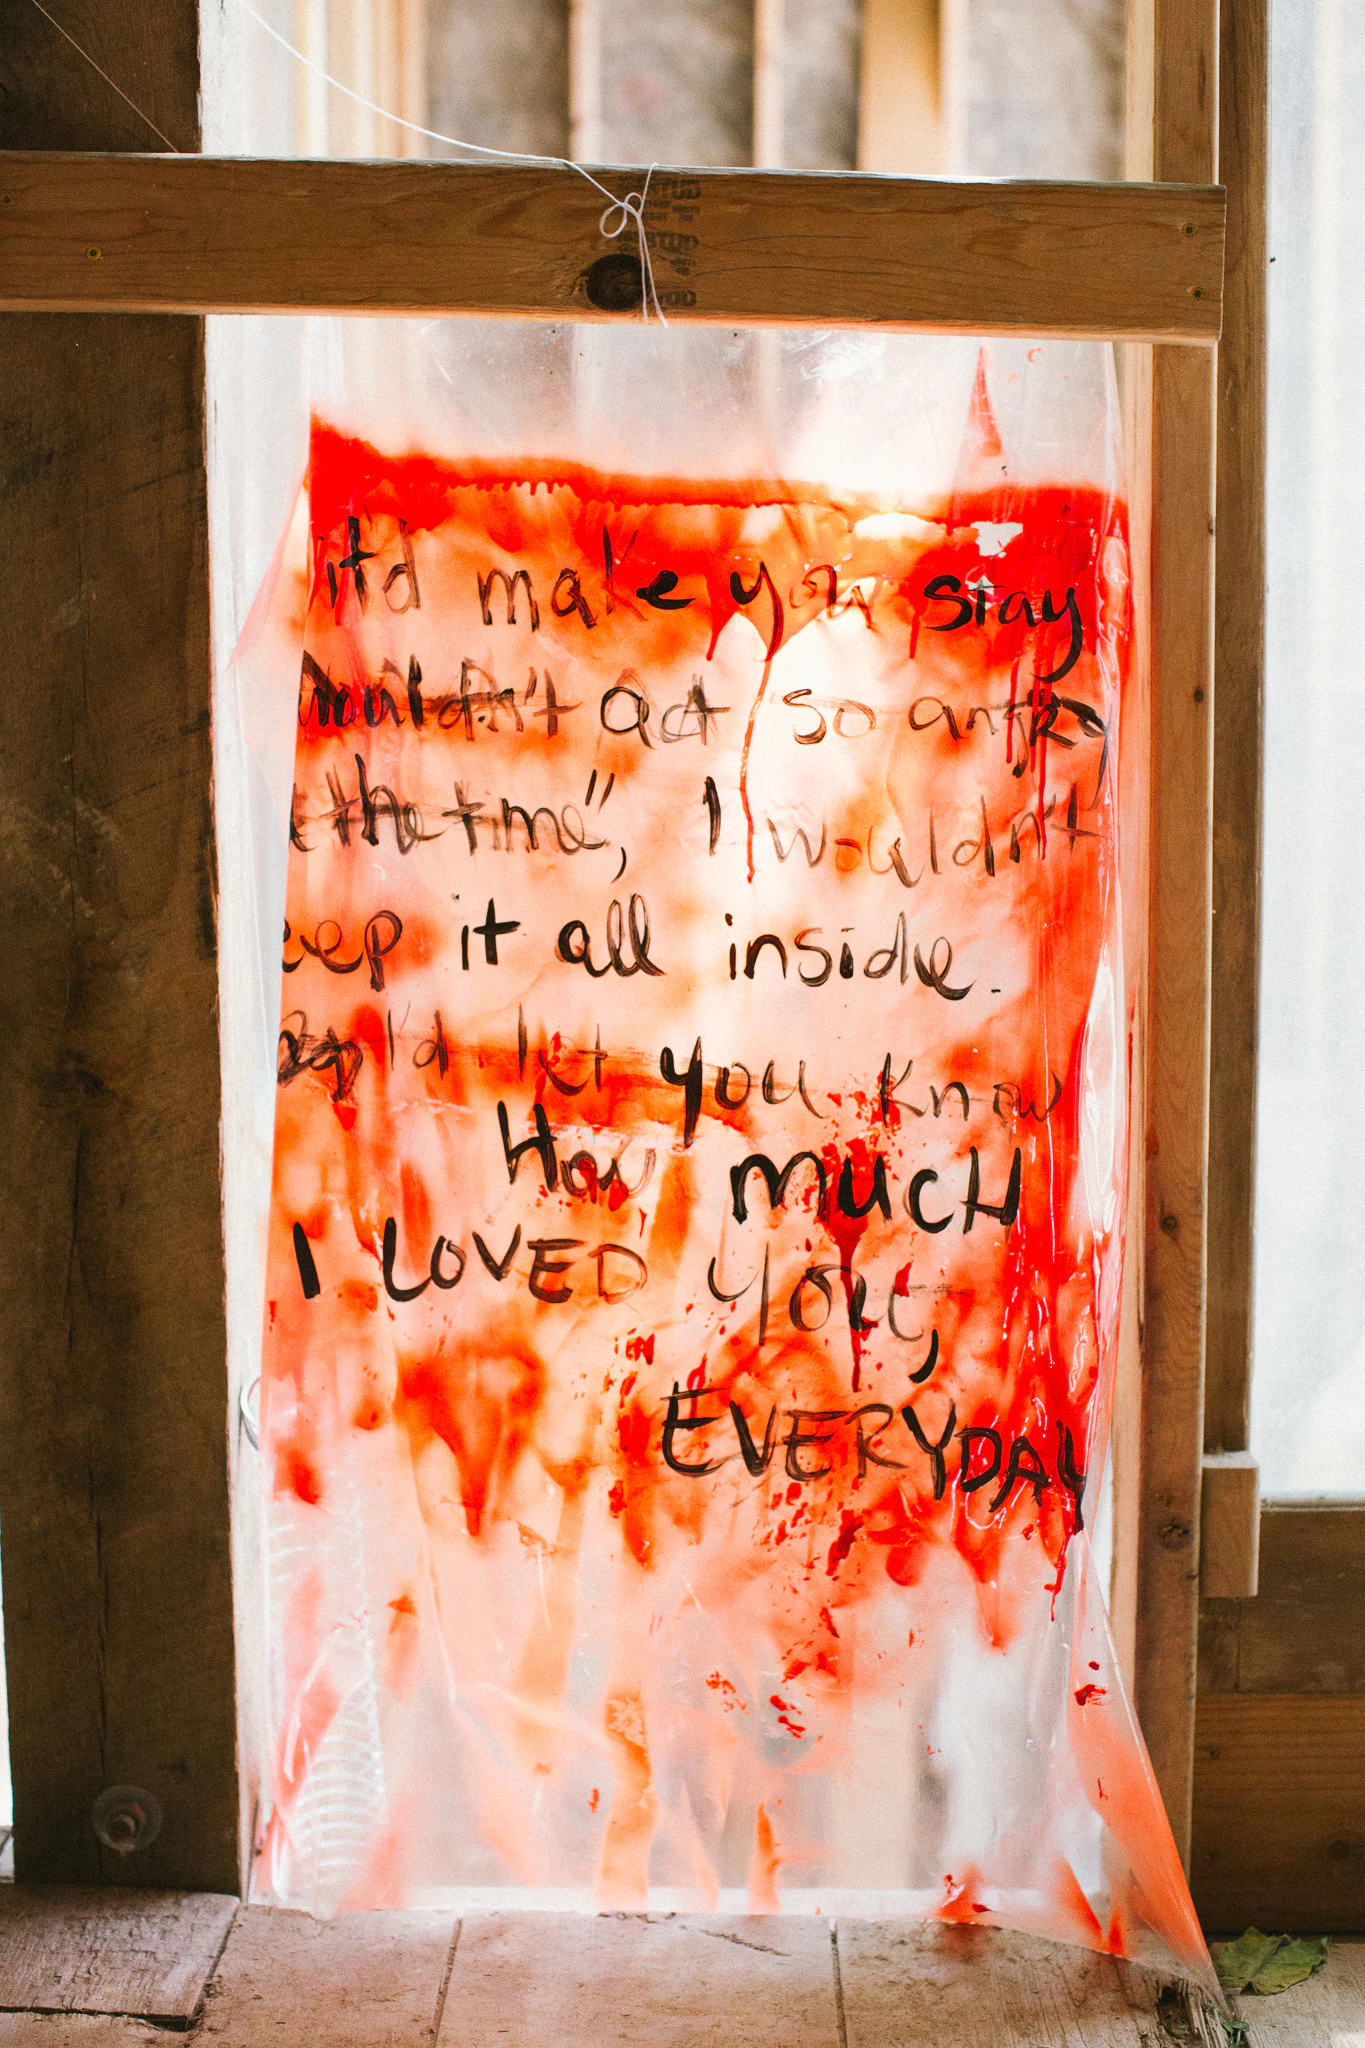 it'd make you stay
wouldn't act so angry
the time", I wouldn't
eep it all inside.
I'd let you know
How much
I LOVED YOU,
EVERYDAY